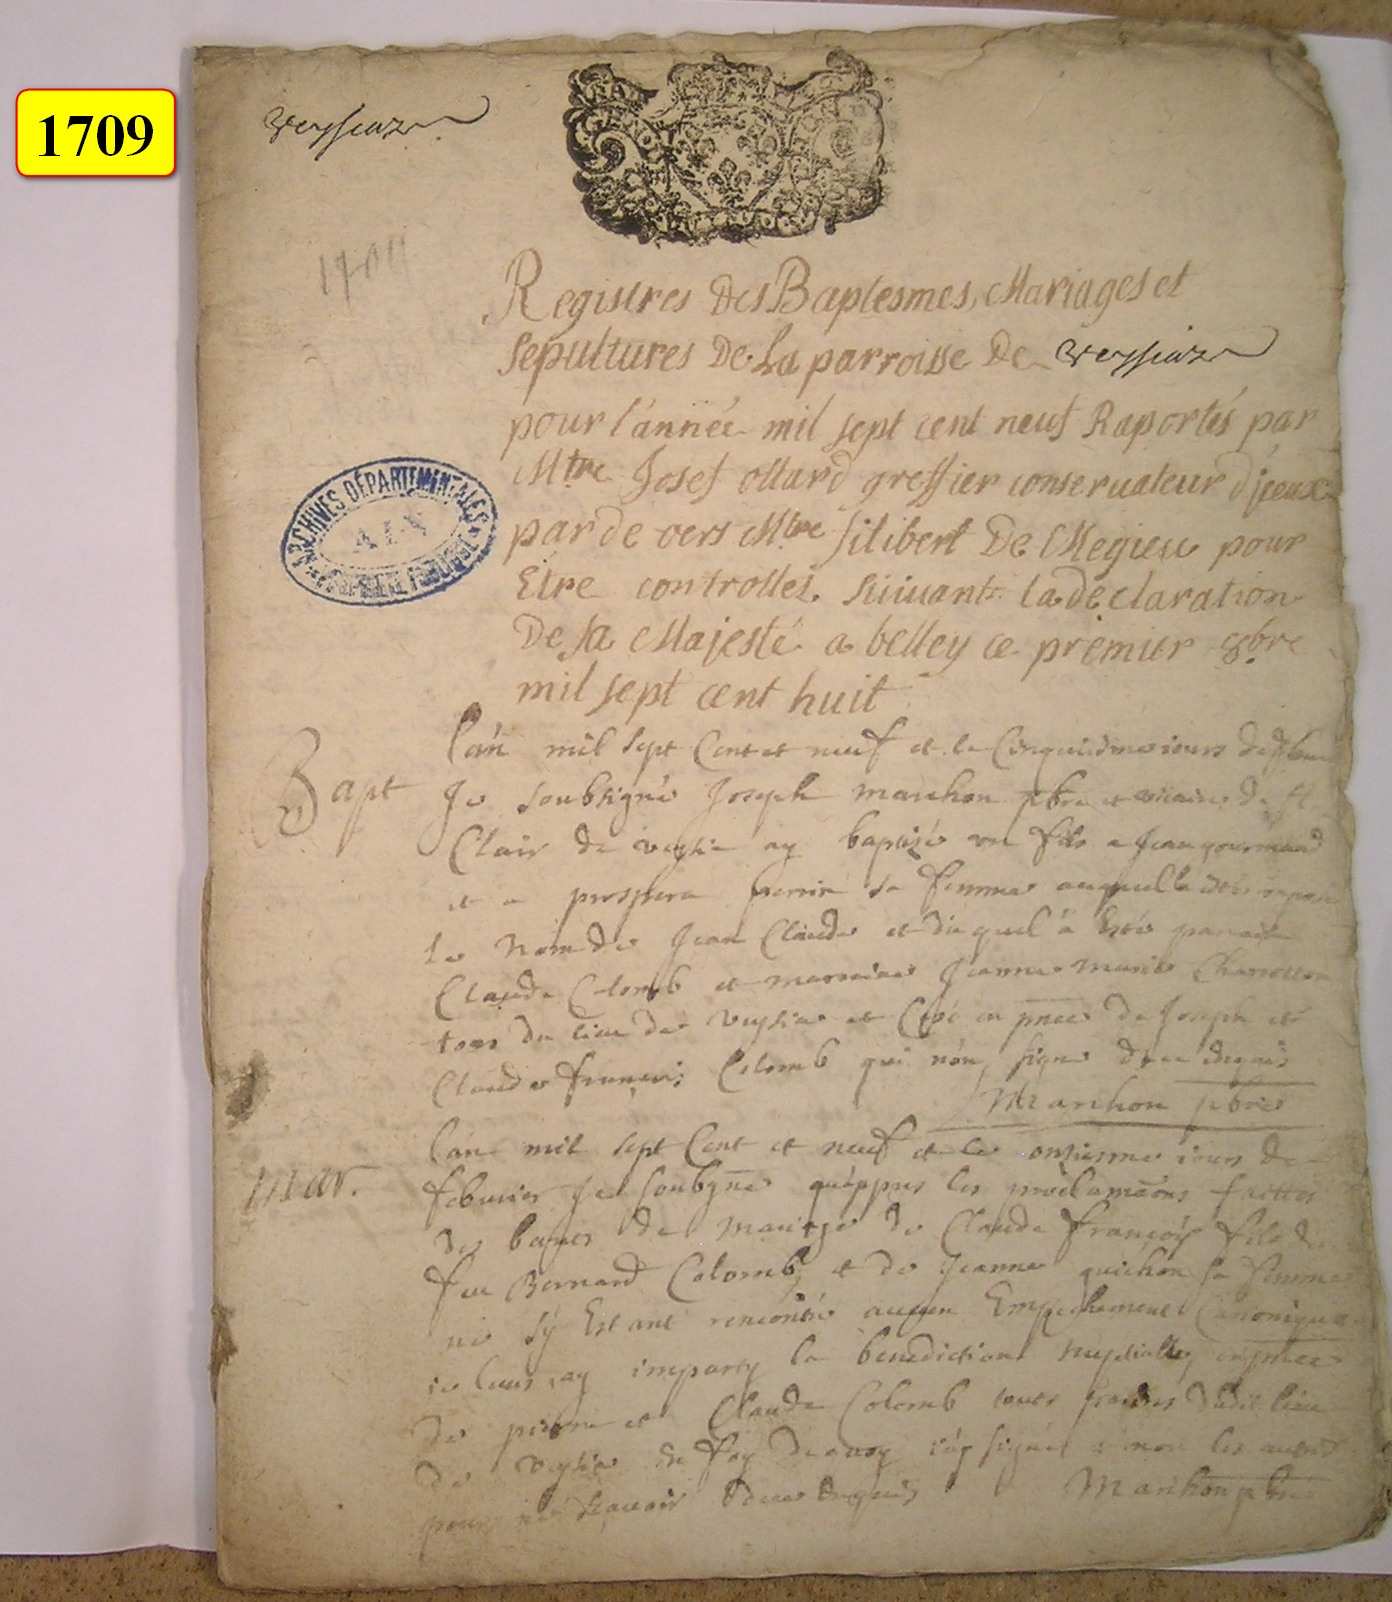 1709
veyssieux
1709
Registres Des Baptesmes, Mariages et
sepultures De La parroisse De veyssieux
pour l'année mil sept cent neuf Raportés par
Mtre Josef ollard greffier conseruateur d'jceux
par de vers Mtre filibert De Megieu pour
Etre controlles suiuant la declaration
De sa Majesté a belley ce premier 8bre
mil sept cent huit
ARCHIVES DÉPARTEMENTALES
AIN
Bapt
lan mil sept Cent et neuf et le Cinquiesme iours de
Je soubsigné Joseph Marchon pbre et vicaire de st
Clair de veysie ay baptisé un fils a Jean gourmand
et a prospera perrin sa femme auquel
le Nom de Jean Claude et du quel a Esté parrain
Claude Colomb et marraine Jeanne Marie
tous du lieu de veysie et Ce en pnce de Joseph et
Claude françois Colomb qui n'on signé de ce enquis
Marchon pbre
Mar.
lan mil sept Cent et neuf et le onzieme iours de
feburier Je soubgné qu'appres les proclamaons faittes
des bancs de mariage de Claude françois fils de
feu Bernard Colomb et de Jeanne guichon sa femme
ne sy Estant rencontré aucun Empechement Canonique
ie leurs ay imparty la benediction nuptialle en pnce
de pierre et Claude Colomb tous dudit lieu
de veysie En foy de quoy i'ay signé et non les autres
pour ne scavoir de ce enquis Marchon pbre